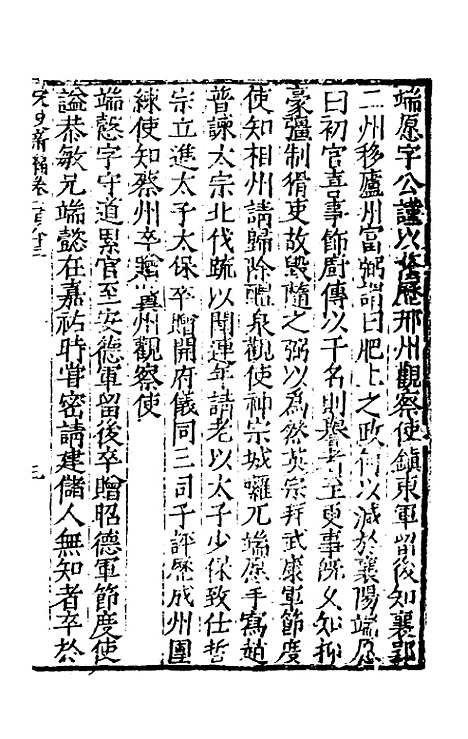 端愿字公謹以蔭歷邢州觀察使鎮東軍留後知襄郢
二州移廬州富弼謂曰肥上之政何以減於襄陽端愿
曰初官喜事飾廚傳以干名則譽者至更事既久知抑
豪彊制猾吏故毀隨之弼以為然英宗拜武康軍節度
使知相州請歸除醴泉觀使神宗城囉兀端愿手寫趙
普諫太宗北伐疏以聞連年請老以太子少保致仕哲
宗立進太子太保卒贈開府儀同三司子評歷成州團
練使知蔡州卒贈冀州觀察使
端慤字守道累官至安德軍留後卒贈昭德軍節度使
謚恭敏兄端懿在嘉祐時嘗密請建儲人無知者卒於
宋史新編卷一百八十三
三